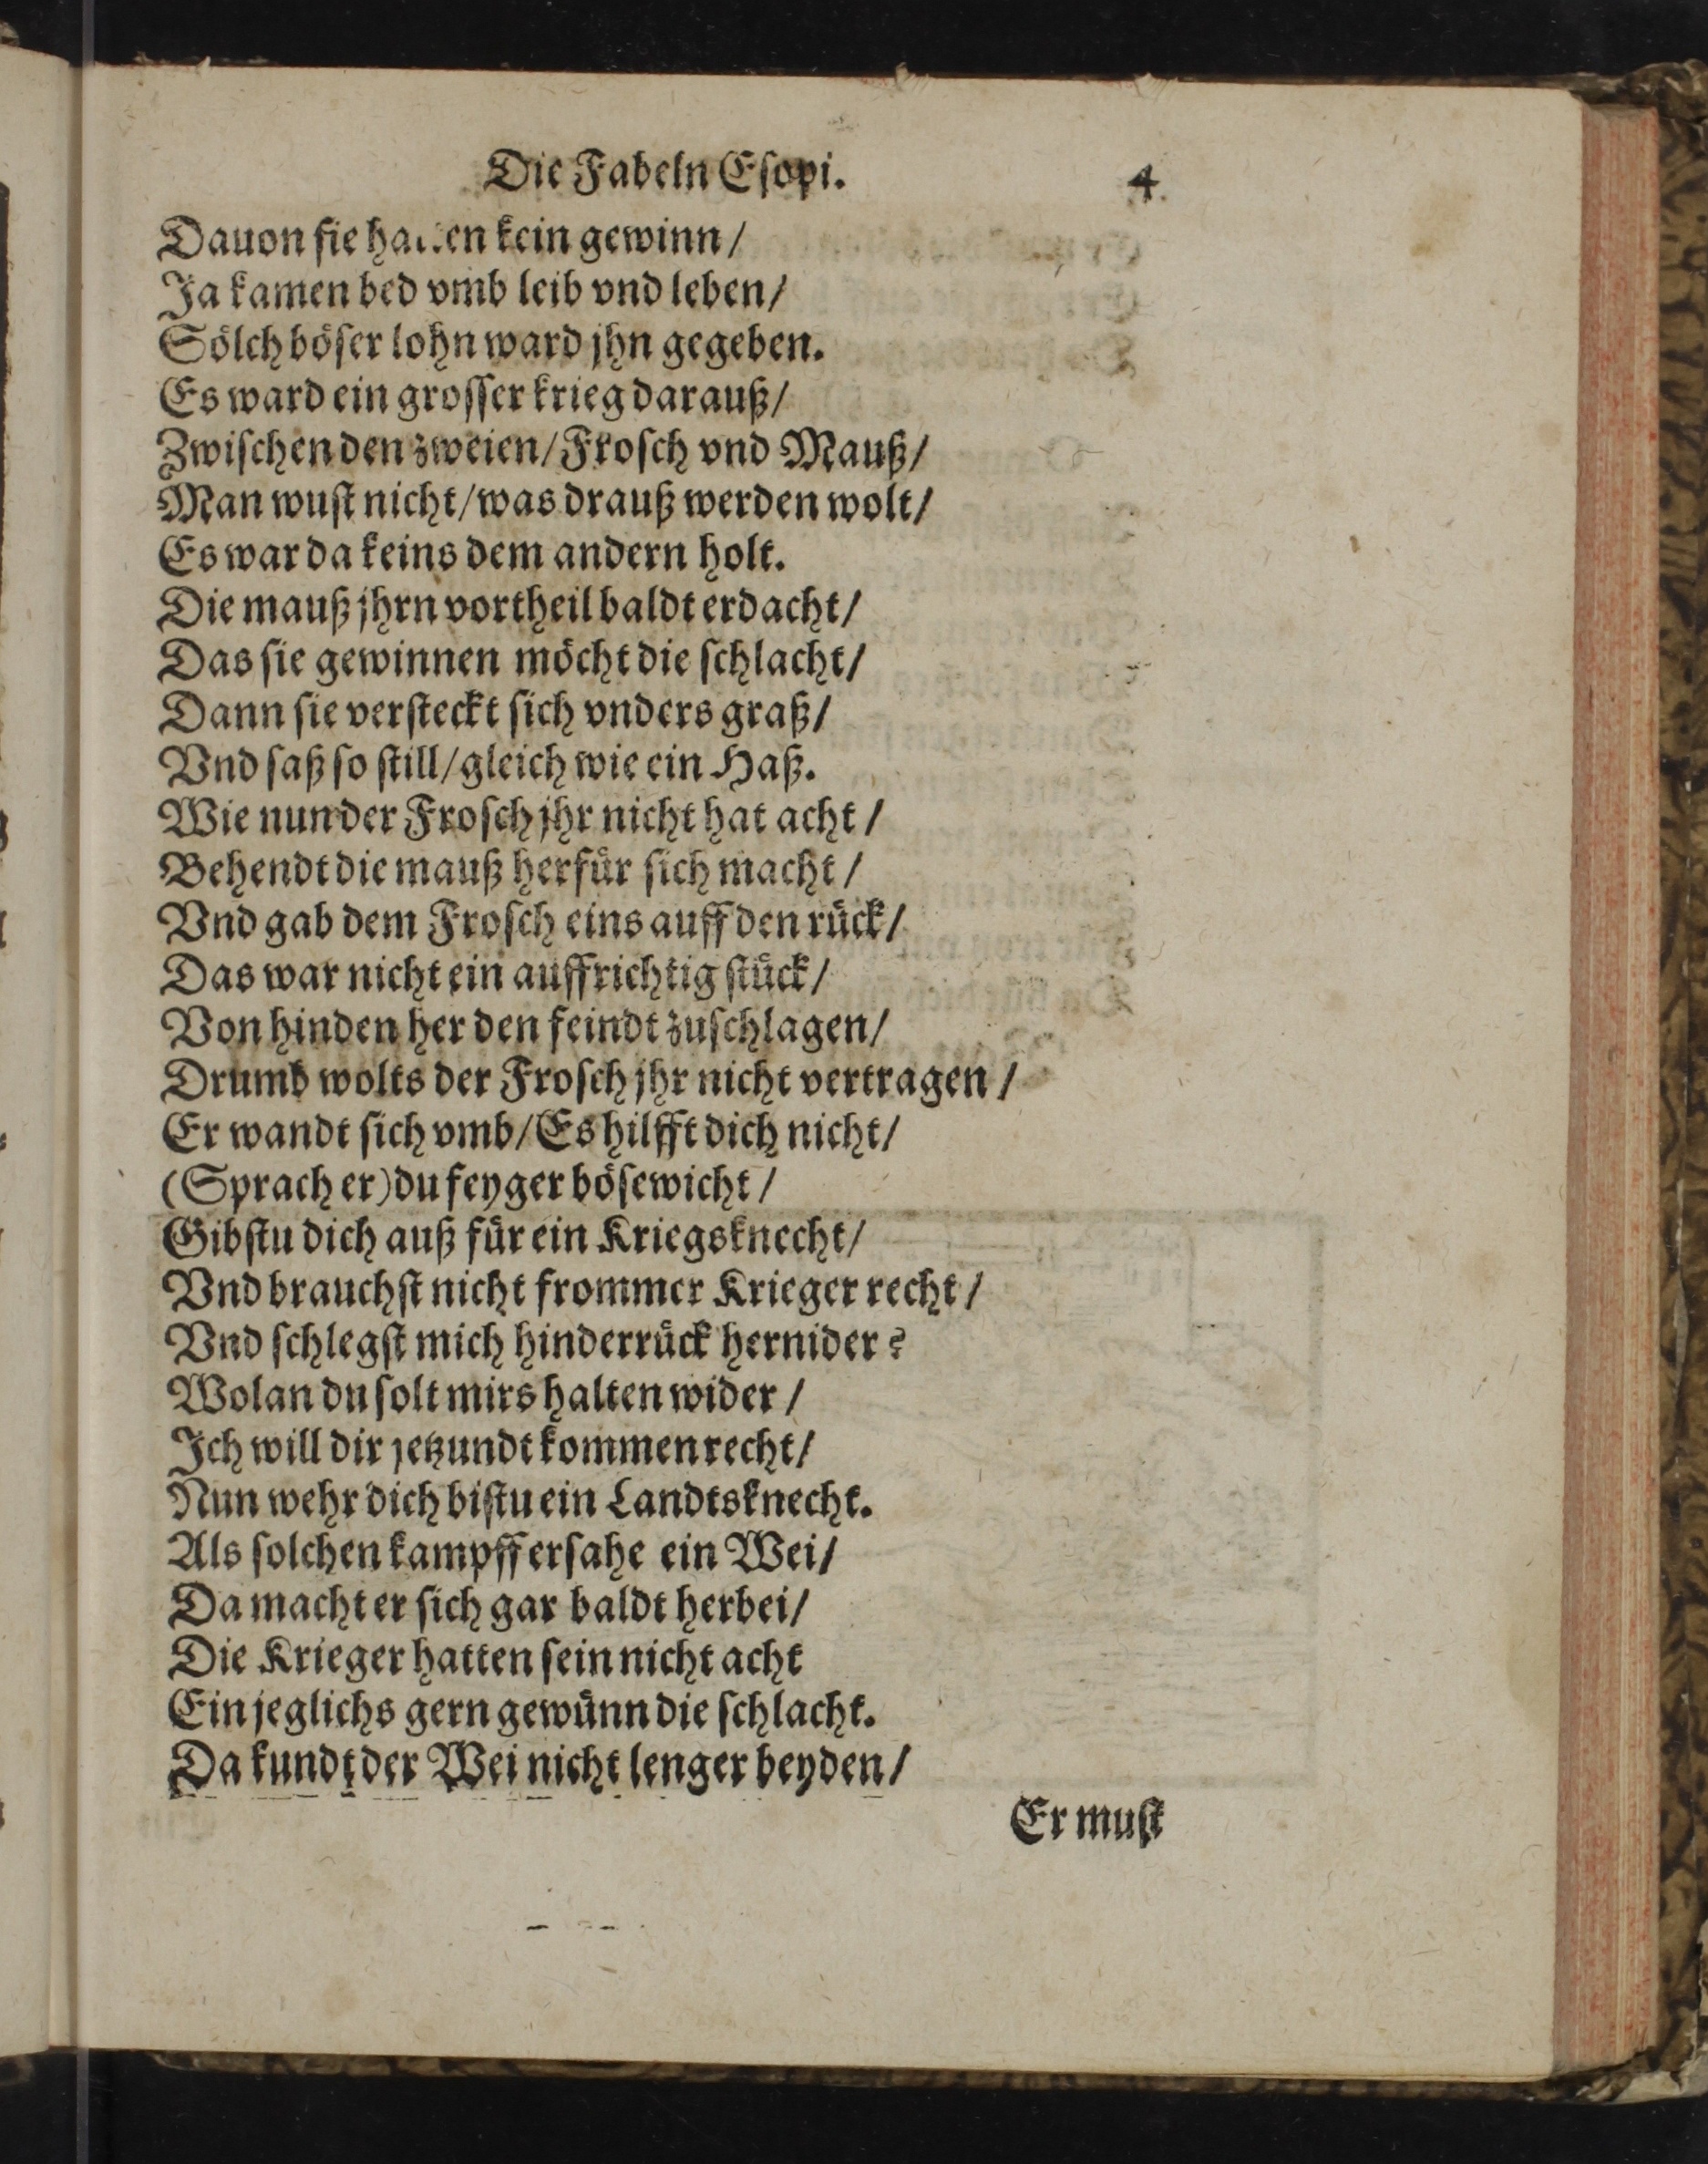 Die Fabeln Eſopi. 4.
Dauon ſie hatten kein gewinn /
Ja kamen bed vmb leib vnd leben /
Sölch böſer lohn ward jhn gegeben.
Es ward ein groſſer krieg darauß /
Zwiſchen den zweien / Froſch vnd Mauß /
Man wuſt nicht / was drauß werden wolt /
Es war da keins dem andern holt.
Die mauß jhrn vortheil baldt erdacht /
Das ſie gewinnen möcht die ſchlacht /
Dann ſie verſteckt ſich vnders graß /
Vnd ſaß ſo ſtill / gleich wie ein Haß.
Wie nun der Froſch jhr nicht hat acht /
Behendt die mauß herfür ſich macht /
Vnd gab dem Froſch eins auff den rück /
Das war nicht ein auffrichtig ſtück /
Von hinden her den feindt zuſchlagen /
Drumb wolts der Froſch jhr nicht vertragen /
Er wandt ſich vmb / Es hilfft dich nicht /
(Sprach er) du feyger böſewicht /
Gibſtu dich auß für ein Kriegsknecht /
Vnd brauchſt nicht frommer Krieger recht /
Vnd ſchlegſt mich hinderrück hernider?
Wolan du ſolt mirs halten wider /
Ich will dir jetzundt kommen recht /
Nun wehr dich biſtu ein Landtsknecht.
Als ſolchen kampff erſahe ein Wei /
Da macht er ſich gar baldt herbei /
Die Krieger hatten ſein nicht acht
Ein jeglichs gern gewünn die ſchlacht.
Da kundt der Wei nicht lenger beyden /
Er muſt